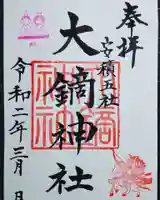 奉拝
安積五社
大鏑神社
令和二年三月 日